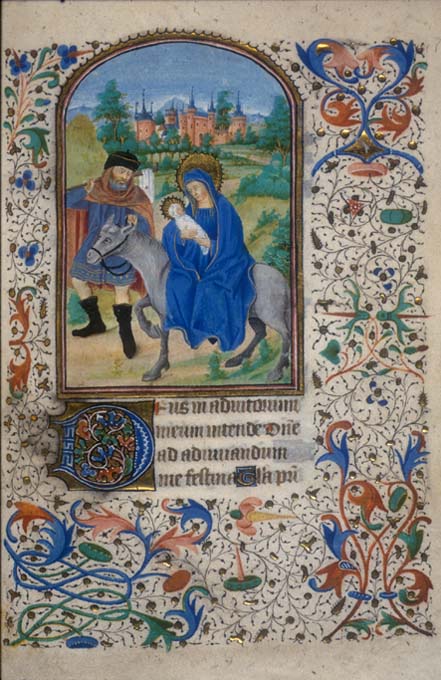 Deus in adiutorium
meum intende Dne
ad adiuuandum
me festina Gla pri